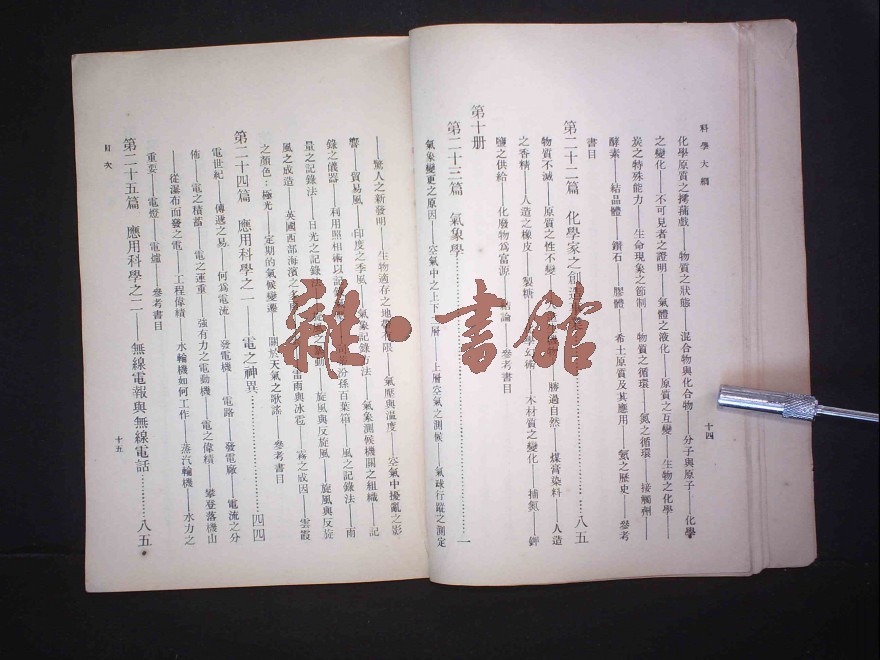 科學大綱
十四
化學原質之摴蒱戲——物質之狀態——混合物與化合物——分子與原子——化學
之變化——不可見者之證明——氣體之液化——原質之互變——生物之化學——
炭之特殊能力——生命現象之節制——物質之循環——氮之循環——接觸劑——
酵素——結晶體——鑽石——膠體——希土原質及其應用——氦之歷史——參考
書目
第二十二篇 化學家之創造 八五
物質不滅——原質之性不變 勝過自然——煤膏染料——人造
之香精——人造之橡皮——製糖 學幻術——木材質之變化——捕氮——鉀
鹽之供給——化廢物爲富源 結論——參考書目
第十册
第二十三篇 氣象學 一
氣象變更之原因——空氣中之上下 層——上層空氣之測候——氣球行蹤之測定
——驚人之新發明——生物適存之地帶有限——氣壓與溫度——空氣中擾亂之影
響——貿易風——印度之季風——氣象記錄方法——氣象測候機關之組織——記
錄之儀器——利用照相術以記 汾孫百葉箱——風之記錄法——雨
量之記錄法——日光之記錄法 動——旋風與反旋風——旋風與反旋
風之成造——英國西部海濱之多 雷雨與冰雹——霧之成因——雲霞
之顏色：極光——定期的氣候變遷——關於天氣之歌謠——參考書目
第二十四篇 應用科學之一——電之神異 四四
電世紀——傳遞之易——何爲電流——發電機——電路——發電廠——電流之分
佈——電之積蓄——電之運重——強有力之電動機——電之偉績——攀登落機山
——從瀑布而發之電——工程偉績——水輪機如何工作——蒸汽輪機——水力之
重要——電燈——電爐——參考書目
第二十五篇 應用科學之二——無線電報與無線電話 八五
目次
十五
雜·書館